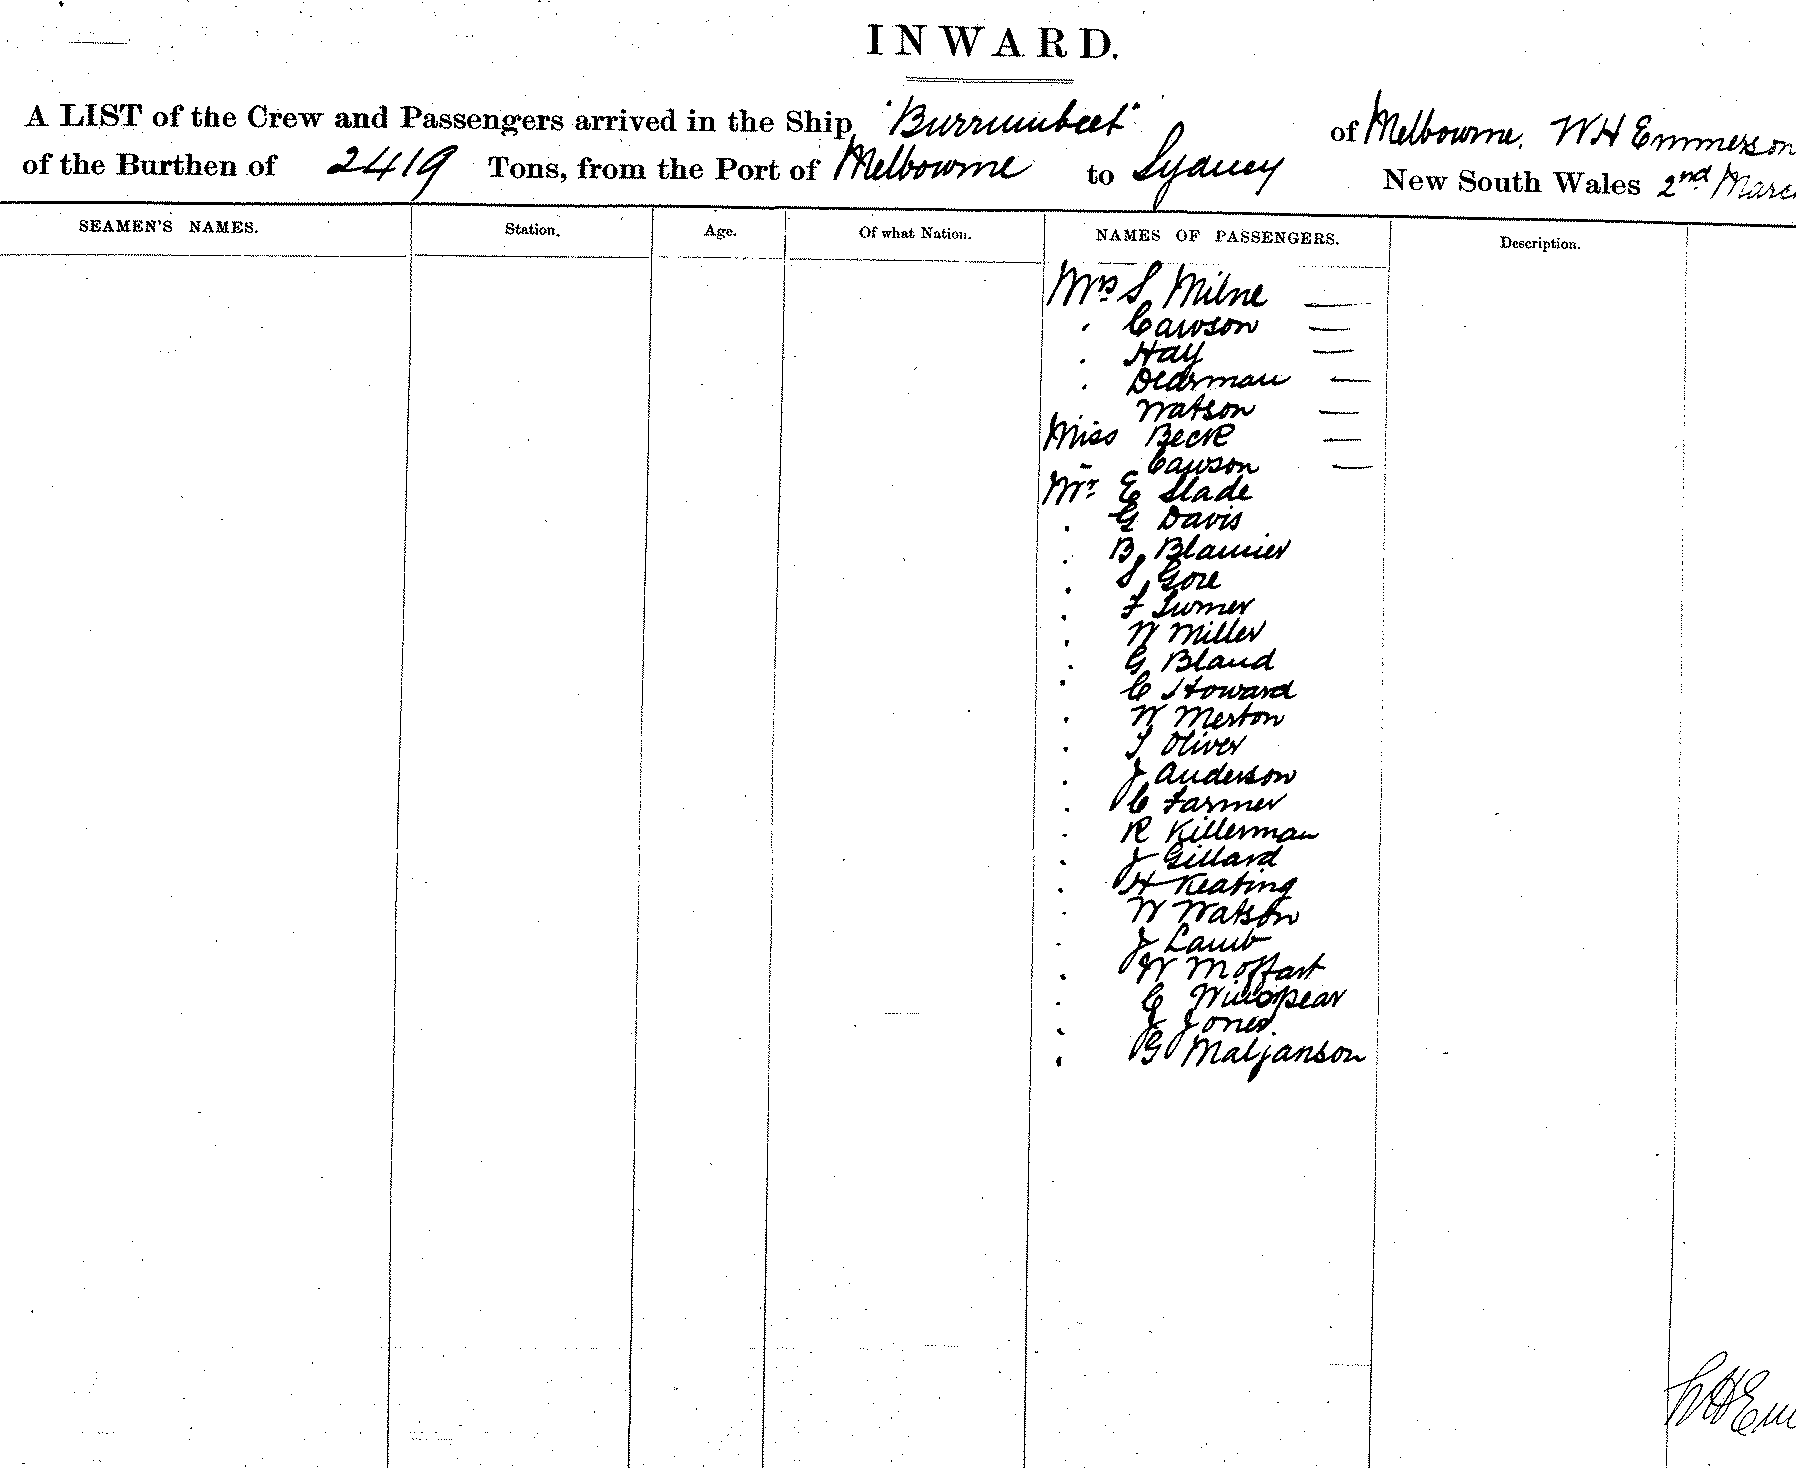 INWARD.
A LIST of the Crew and Passengers arrived in the Ship "Burrumbeet" of Melbourne. W H Emmerson
of the Burthen of 2419 Tons, from the Port of Melbourne to Sydney New South Wales 2nd Marc
SEAMEN'S NAMES. Station. Age. Of what Nation. NAMES OF PASSENGERS. Description.
Mrs S Milne —
" Cawson —
" Hay —
" Dearman —
Watson —
Miss Beck —
" Cawson —
Mr E Slade
" G Davis
" B Blamier
" S Gore
" F Turner
" W Miller
" G Bland
" C Howard
" W Merton
" T Oliver
" J Anderson
" C Farmer
" R Killerman
" J Gillard
" H Keating
" W Watson
" J Lamb
" W Moffart
" G Winspear
" J Jones.
" G Maljanson
W H Em